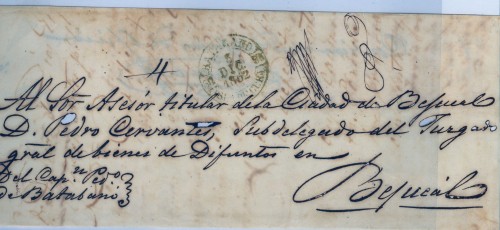 4
Al Sor Asesor titular de la Ciudad de Bejucal
D. Pedro Cervantes, Subdelegado del Juzgado
gral de bienes de Difuntos en
Bejucál
Del Capn. Pedo
de Batabanó